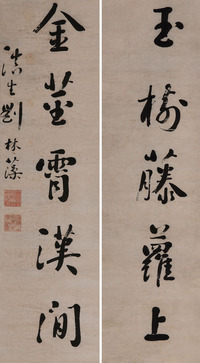 玉樹藤蘿上
金莖霄漢間
生劉林藻